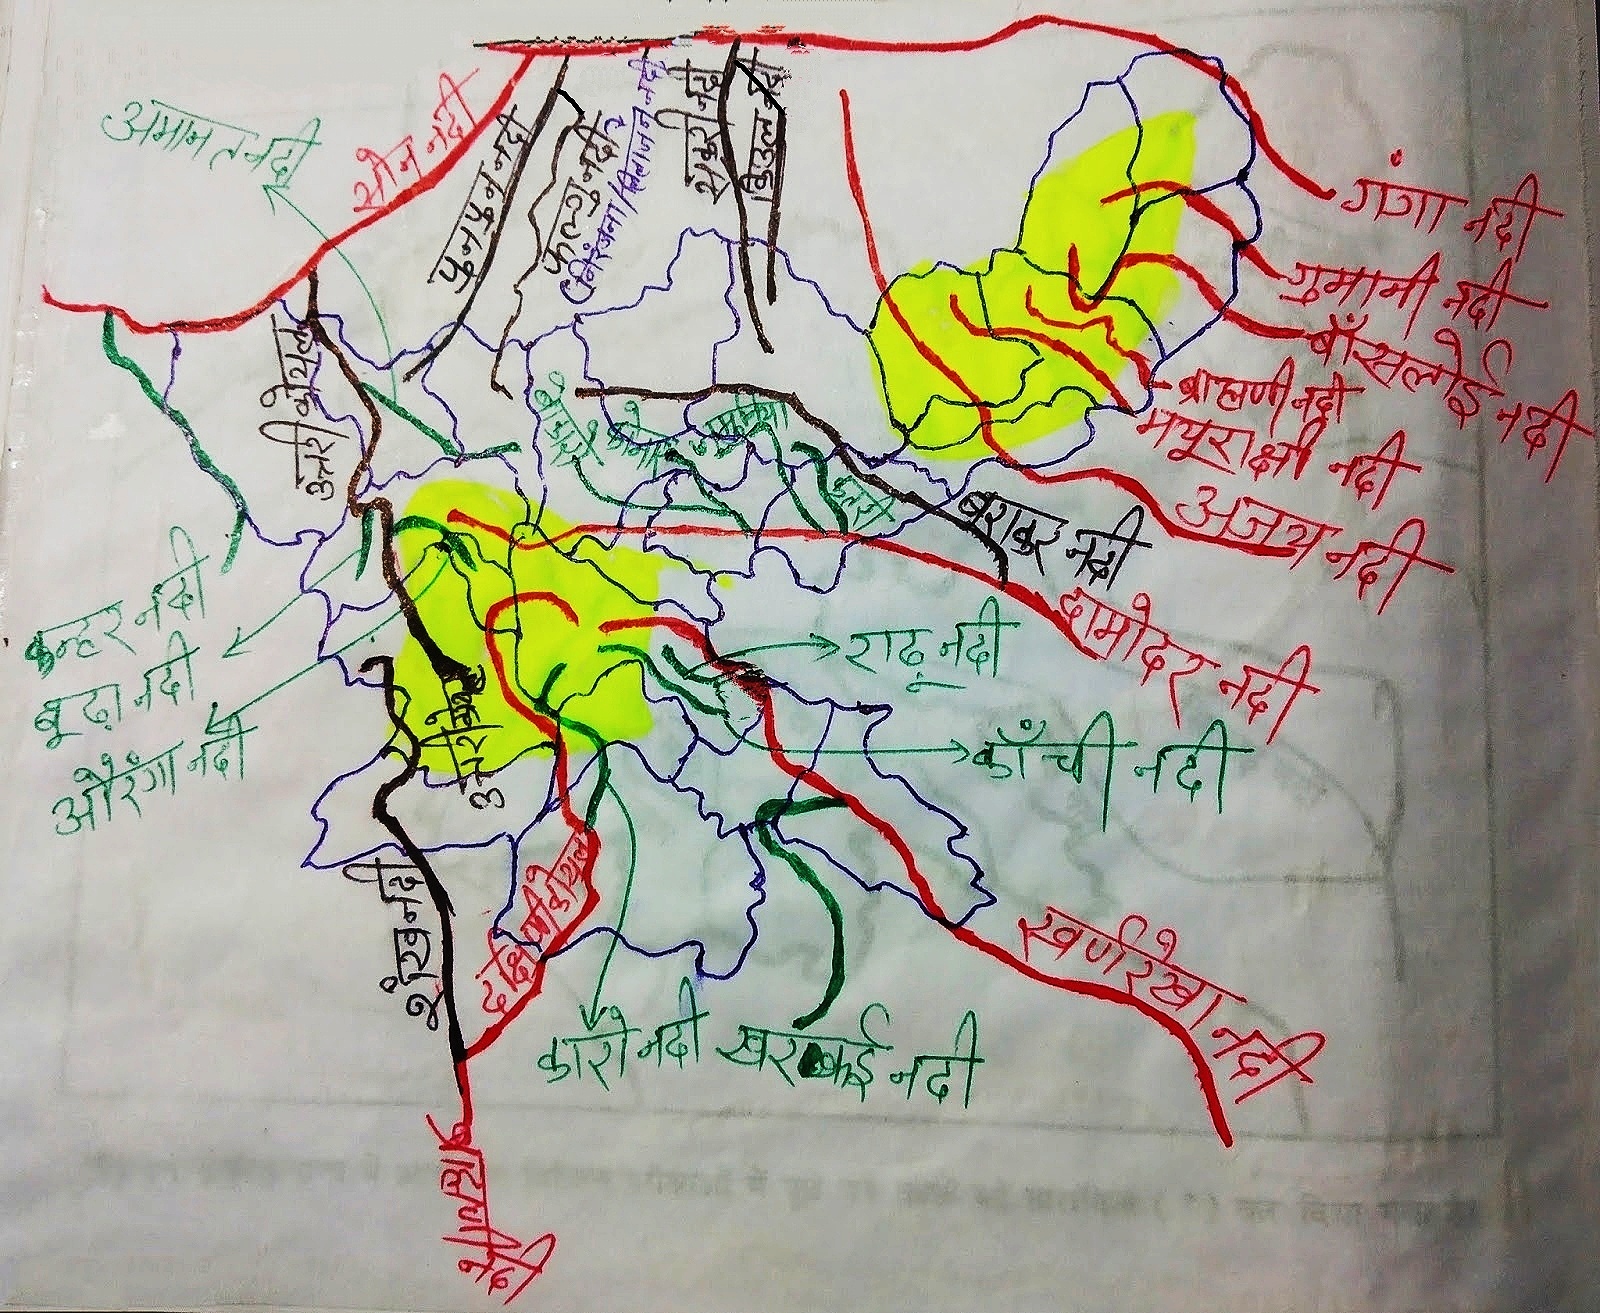 अमानत नदी
सोन नदी
पुनपुन नदी
फल्गु नदी
(निरंजना/लिलाजन नदी
सकरी नदी
किउल नदी
गंगा नदी
गुमानी नदी
बाँसलोई नदी
ब्राह्मणी नदी
मयूराक्षी नदी
अजय नदी
उत्तरी कोयल
बराकर नदी
दामोदर नदी
कन्हर नदी
बूढ़ा नदी
औरंगा नदी
राढू नदी
काँची नदी
शंख नदी
दक्षिणी कोयल
स्वर्णरेखा नदी
कारो नदी
खरकई नदी